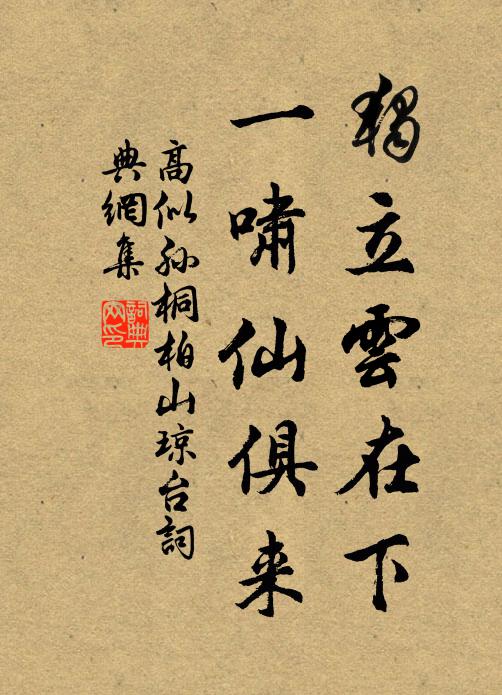 獨立雲在下
一嘯仙俱来
高似孙桐柏山琼台詞
典網集
詞典網印